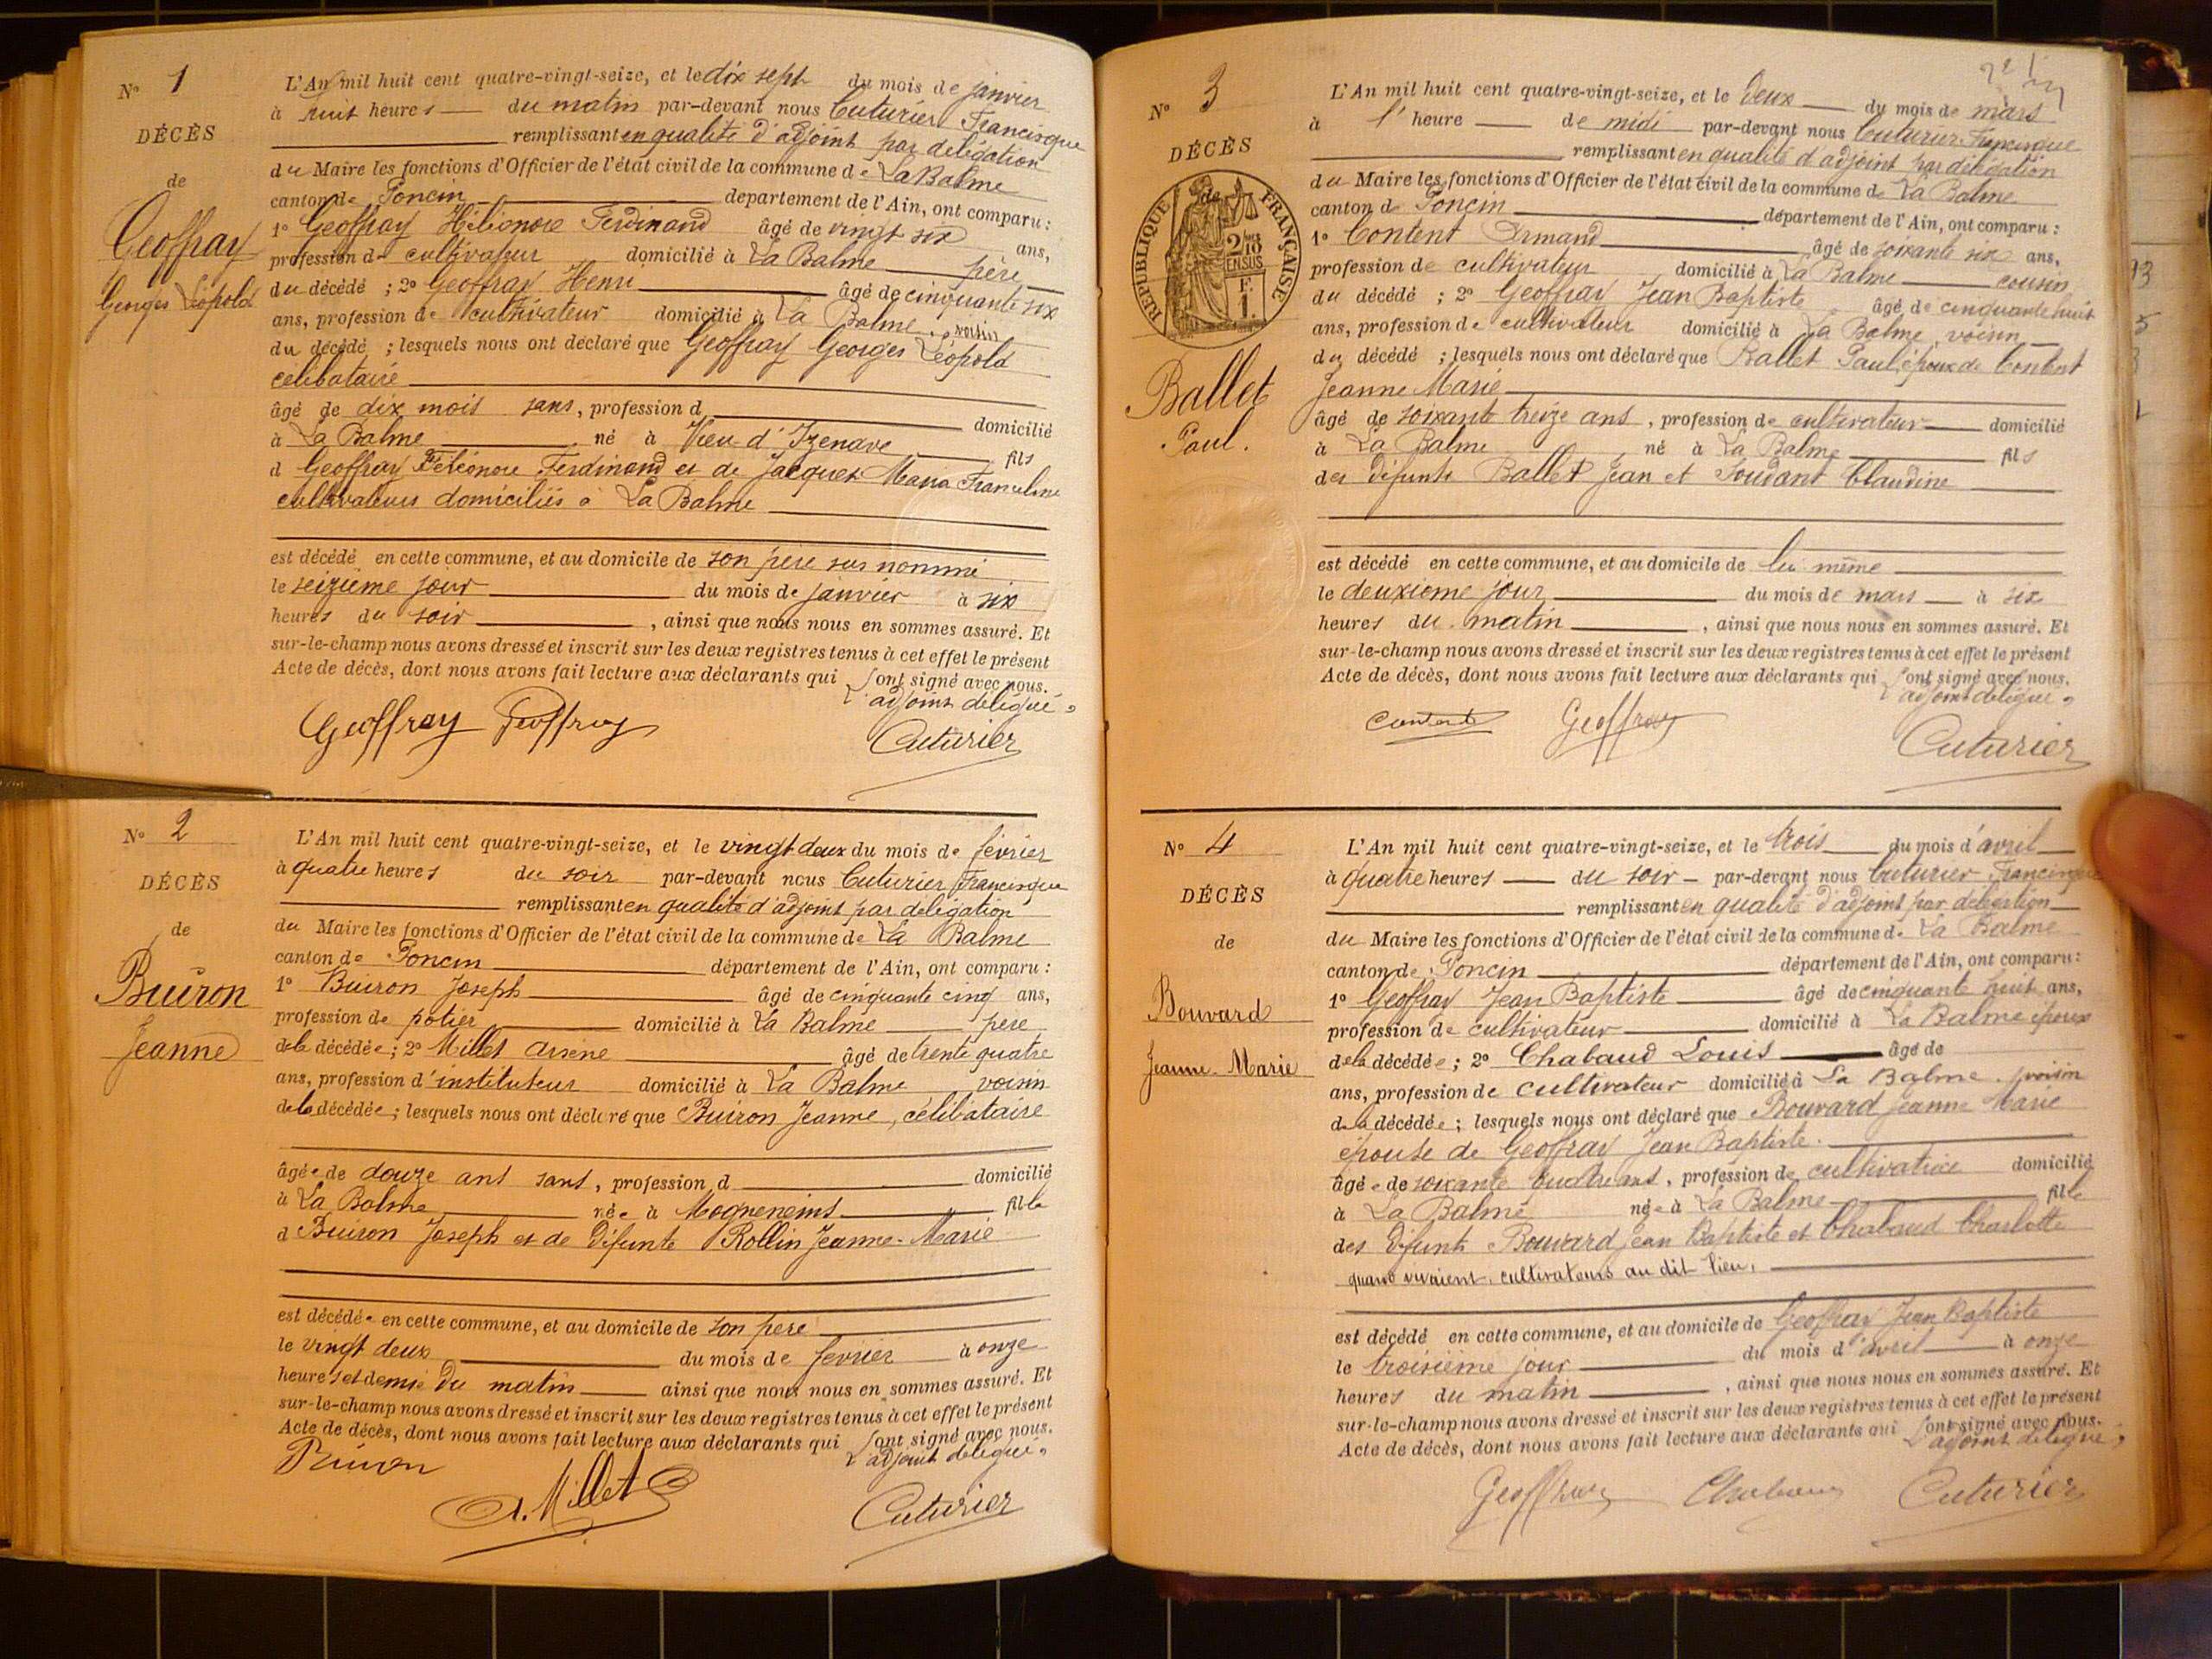 N° 1
DÉCÈS
de
Geoffray
Georges Léopold
L'An mil huit cent quatre-vingt-seize, et le dix sept du mois de janvier
à huit heures du matin par-devant nous Cuturier Francisque
remplissant en qualité d'adjoint par délégation
du Maire les fonctions d'Officier de l'état civil de la commune de La Balme
canton de Poncin département de l'Ain, ont comparu :
1° Geoffray Héléonore Ferdinand âgé de vingt six ans,
profession de cultivateur domicilié à La Balme père
du décédé ; 2° Geoffray Henri âgé de cinquante six
ans, profession de cultivateur domicilié à La Balme, voisin
du décédé ; lesquels nous ont déclaré que Geoffray Georges Léopold
célibataire
âgé de dix mois sans, profession d domicilié
à La Balme né à Vieu d'Izenave fils
d Geoffray Eléonore Ferdinand et de Jacquet Maria
cultivateurs domiciliés à La Balme
est décédé en cette commune, et au domicile de son père sus nommé
le seizième jour du mois de janvier à six
heures du soir , ainsi que nous nous en sommes assuré. Et
sur-le-champ nous avons dressé et inscrit sur les deux registres tenus à cet effet le présent
Acte de décès, dont nous avons fait lecture aux déclarants qui ont signé avec nous.
L'adjoint délégué
Geoffray Geoffray Cuturier
N° 2
DÉCÈS
de
Buiron
Jeanne
L'An mil huit cent quatre-vingt-seize, et le vingt-deux du mois de février
à quatre heures du soir par-devant nous Cuturier Francisque
remplissant en qualité d'adjoint par délégation
du Maire les fonctions d'Officier de l'état civil de la commune de La Balme
canton de Poncin département de l'Ain, ont comparu :
1° Buiron Joseph âgé de cinquante cinq ans,
profession de potier domicilié à La Balme père
de la décédée ; 2° Millet Arsène âgé de trente quatre
ans, profession d'instituteur domicilié à La Balme voisin
de la décédée ; lesquels nous ont déclaré que Buiron Jeanne, célibataire
âgée de douze ans sans, profession d domicilié
à La Balme née à Mogneneins fille
d Buiron Joseph et de défunte Rollin Jeanne-Marie
est décédée en cette commune, et au domicile de son père
le vingt deux du mois de février à onze
heures et demie du matin ainsi que nous nous en sommes assuré. Et
sur-le-champ nous avons dressé et inscrit sur les deux registres tenus à cet effet le présent
Acte de décès, dont nous avons fait lecture aux déclarants qui ont signé avec nous.
L'adjoint délégué
Buiron A. Millet Cuturier
N° 3
DÉCÈS
de
RÉPUBLIQUE FRANÇAISE
2/10 EN SUS
F. 1
Ballet
Paul.
L'An mil huit cent quatre-vingt-seize, et le deux du mois de mars
à l' heure de midi par-devant nous Cuturier Francisque
remplissant en qualité d'adjoint par délégation
du Maire les fonctions d'Officier de l'état civil de la commune de La Balme
canton de Poncin département de l'Ain, ont comparu :
1° Content Armand âgé de soixante six ans,
profession de cultivateur domicilié à La Balme cousin
du décédé ; 2° Geoffray Jean Baptiste âgé de cinquante huit
ans, profession de cultivateur domicilié à La Balme, voisin
du décédé ; lesquels nous ont déclaré que Ballet Paul, époux de Content
Jeanne Marie
âgé de soixante treize ans, profession de cultivateur domicilié
à La Balme né à La Balme fils
des défunts Ballet Jean et Soudant Claudine
est décédé en cette commune, et au domicile de lui-même
le deuxième jour du mois de mars à six
heures du matin , ainsi que nous nous en sommes assuré. Et
sur-le-champ nous avons dressé et inscrit sur les deux registres tenus à cet effet le présent
Acte de décès, dont nous avons fait lecture aux déclarants qui ont signé avec nous.
L'adjoint délégué
Content Geoffray Cuturier
N° 4
DÉCÈS
de
Bouvard
Jeanne-Marie
L'An mil huit cent quatre-vingt-seize, et le trois du mois d'avril
à quatre heures du soir par-devant nous Cuturier Francisque
remplissant en qualité d'adjoint par délégation
du Maire les fonctions d'Officier de l'état civil de la commune de La Balme
canton de Poncin département de l'Ain, ont comparu :
1° Geoffray Jean Baptiste âgé de cinquante huit ans,
profession de cultivateur domicilié à La Balme époux
de la décédée ; 2° Chabaud Louis âgé de
ans, profession de cultivateur domicilié à La Balme, voisin
de la décédée ; lesquels nous ont déclaré que Bouvard Jeanne Marie
épouse de Geoffray Jean Baptiste.
âgée de soixante quatre ans, profession de cultivatrice domicilié
à La Balme née à La Balme fille
des défunts Bouvard Jean Baptiste et Chabaud Charlotte
quand vivaient, cultivateurs au dit lieu.
est décédé en cette commune, et au domicile de Geoffray Jean Baptiste
le troisième jour du mois d'avril à onze
heures du matin , ainsi que nous nous en sommes assuré. Et
sur-le-champ nous avons dressé et inscrit sur les deux registres tenus à cet effet le présent
Acte de décès, dont nous avons fait lecture aux déclarants qui ont signé avec nous.
L'adjoint délégué
Geoffray Chabaud Cuturier